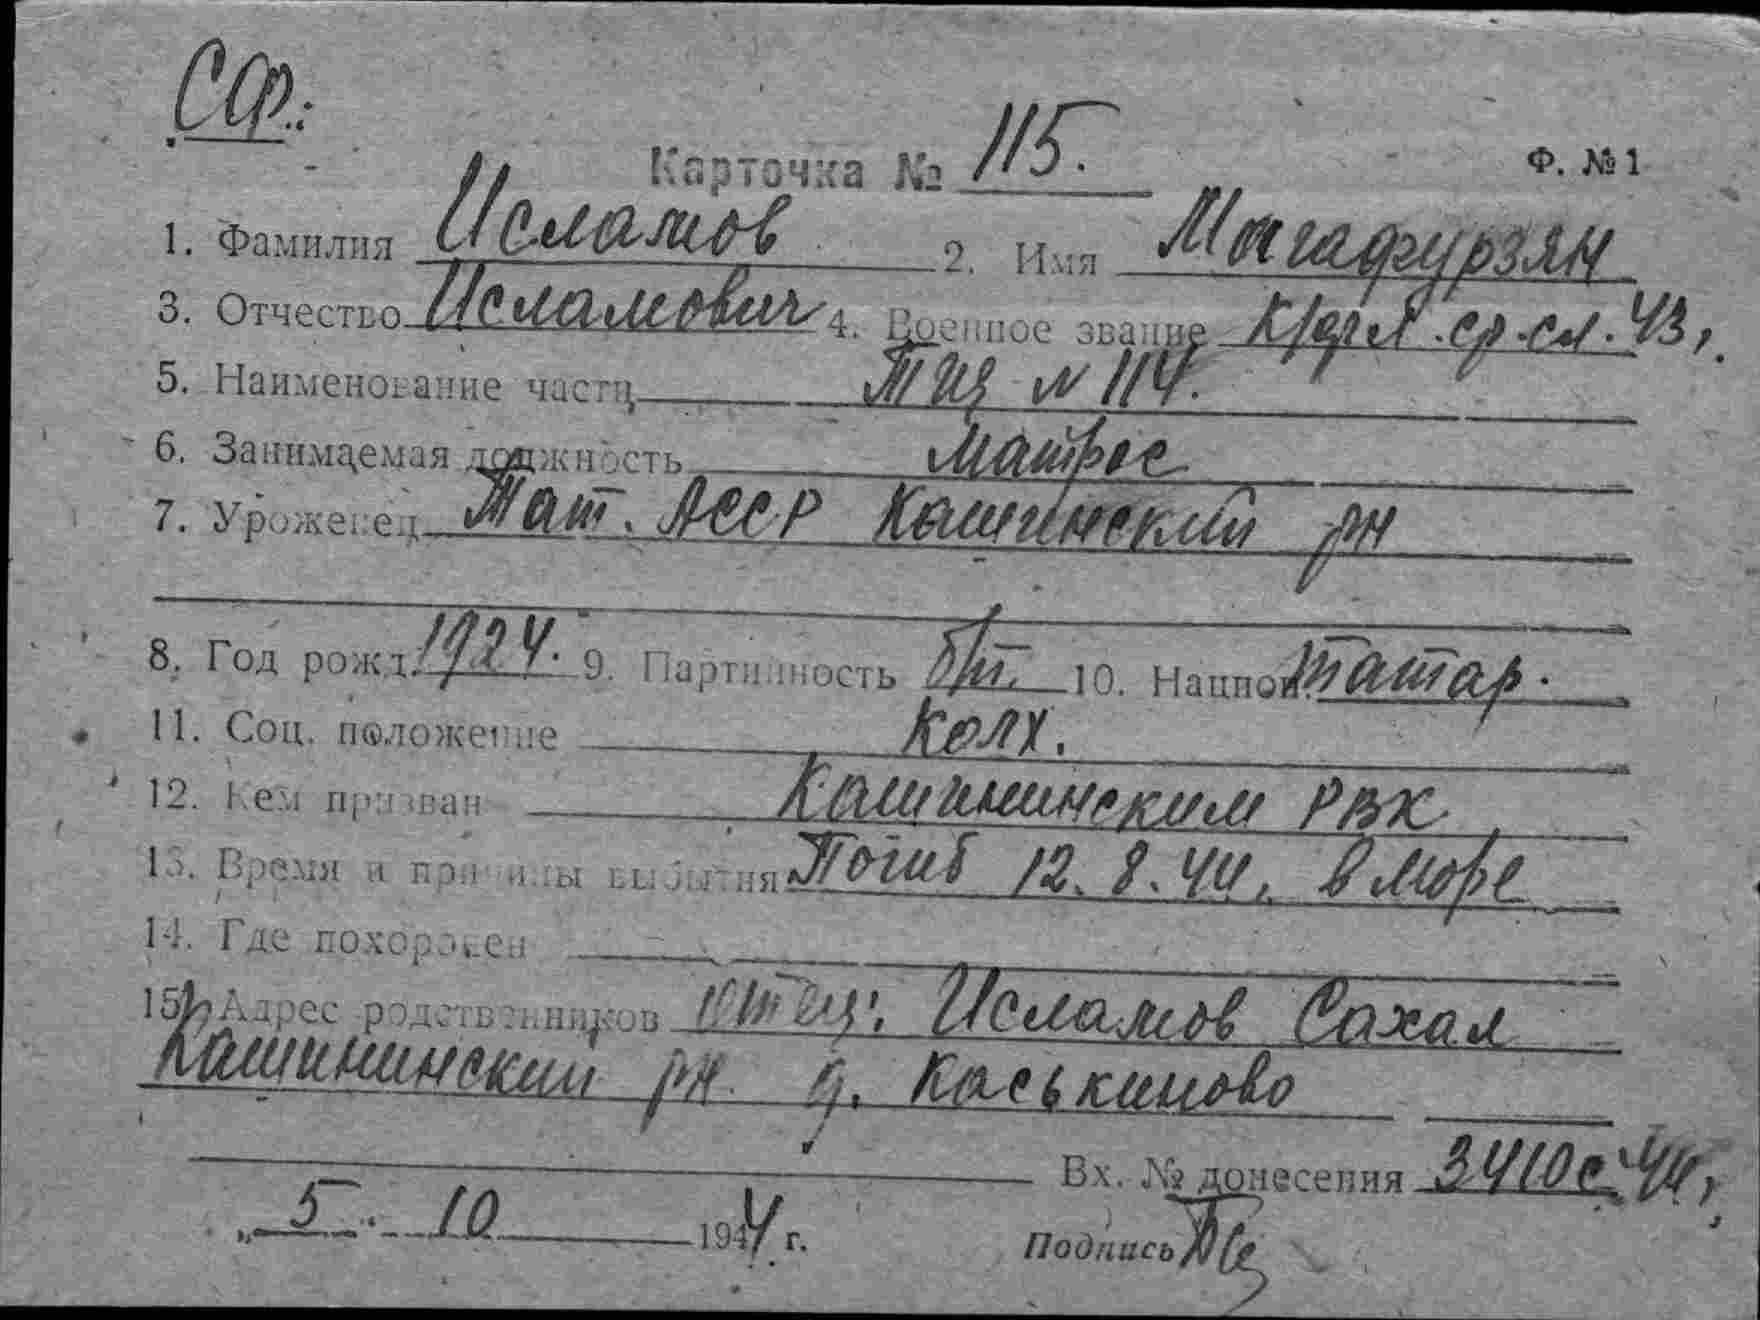 СФ.:
Карточка № 115.
Ф. № 1
1. Фамилия Исламов 2. Имя Магафурзян
3. Отчество Исламович 4. Военное звание К/фл. ср. сл. 43 г.
5. Наименование части ТЩ № 114.
6. Занимаемая должность Матрос
7. Уроженец Тат. АССР Кашинский рн
8. Год рожд. 1924. 9. Партийность б/п. 10. Национ. Татар.
11. Соц. положение Колх.
12. Кем призван Кашиминским РВК
13. Время и причины выбытия Погиб 12.8.44 г. в море
14. Где похоронен
15. Адрес родственников отец: Исламов Сахал
Кашиминский рн д. Каськиново
Вх. № донесения 3410с 44 г.
„ 5 . 10 1944 г.
Подпись